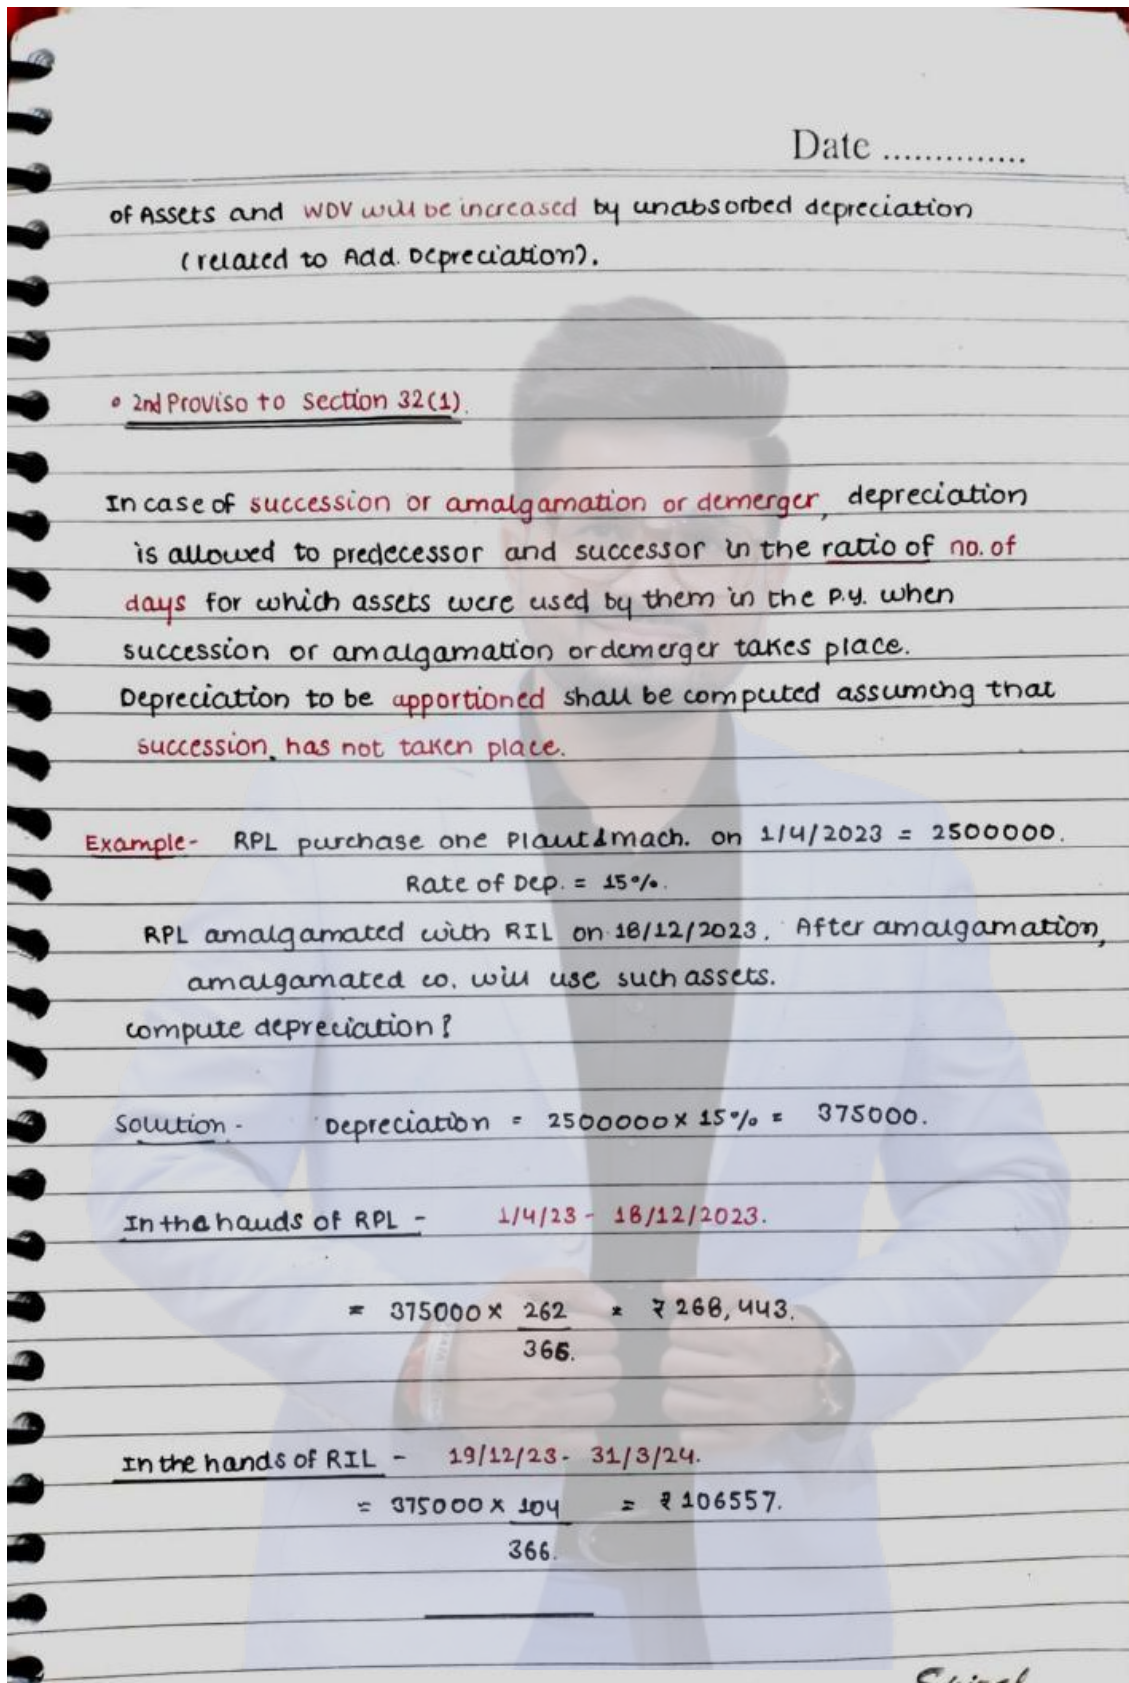 Date ..............
of Assets and WDV will be increased by unabsorbed depreciation
(related to Add. Depreciation).
• 2nd Proviso to Section 32(1).
In case of succession or amalgamation or demerger, depreciation
is allowed to predecessor and successor in the ratio of no. of
days for which assets were used by them in the P.y. when
succession or amalgamation or demerger takes place.
Depreciation to be apportioned shall be computed assuming that
succession, has not taken place.
Example- RPL purchase one Plant & mach. on 1/4/2023 = 2500000.
Rate of Dep. = 15%.
RPL amalgamated with RIL on 18/12/2023. After amalgamation,
amalgamated co. will use such assets.
compute depreciation?
Solution - Depreciation = 2500000 x 15% = 375000.
In the hands of RPL - 1/4/23 - 18/12/2023.
= 375000 x 262 = ₹ 268,443.
366.
In the hands of RIL - 19/12/23 - 31/3/24.
= 375000 x 104 = ₹ 106557.
366.